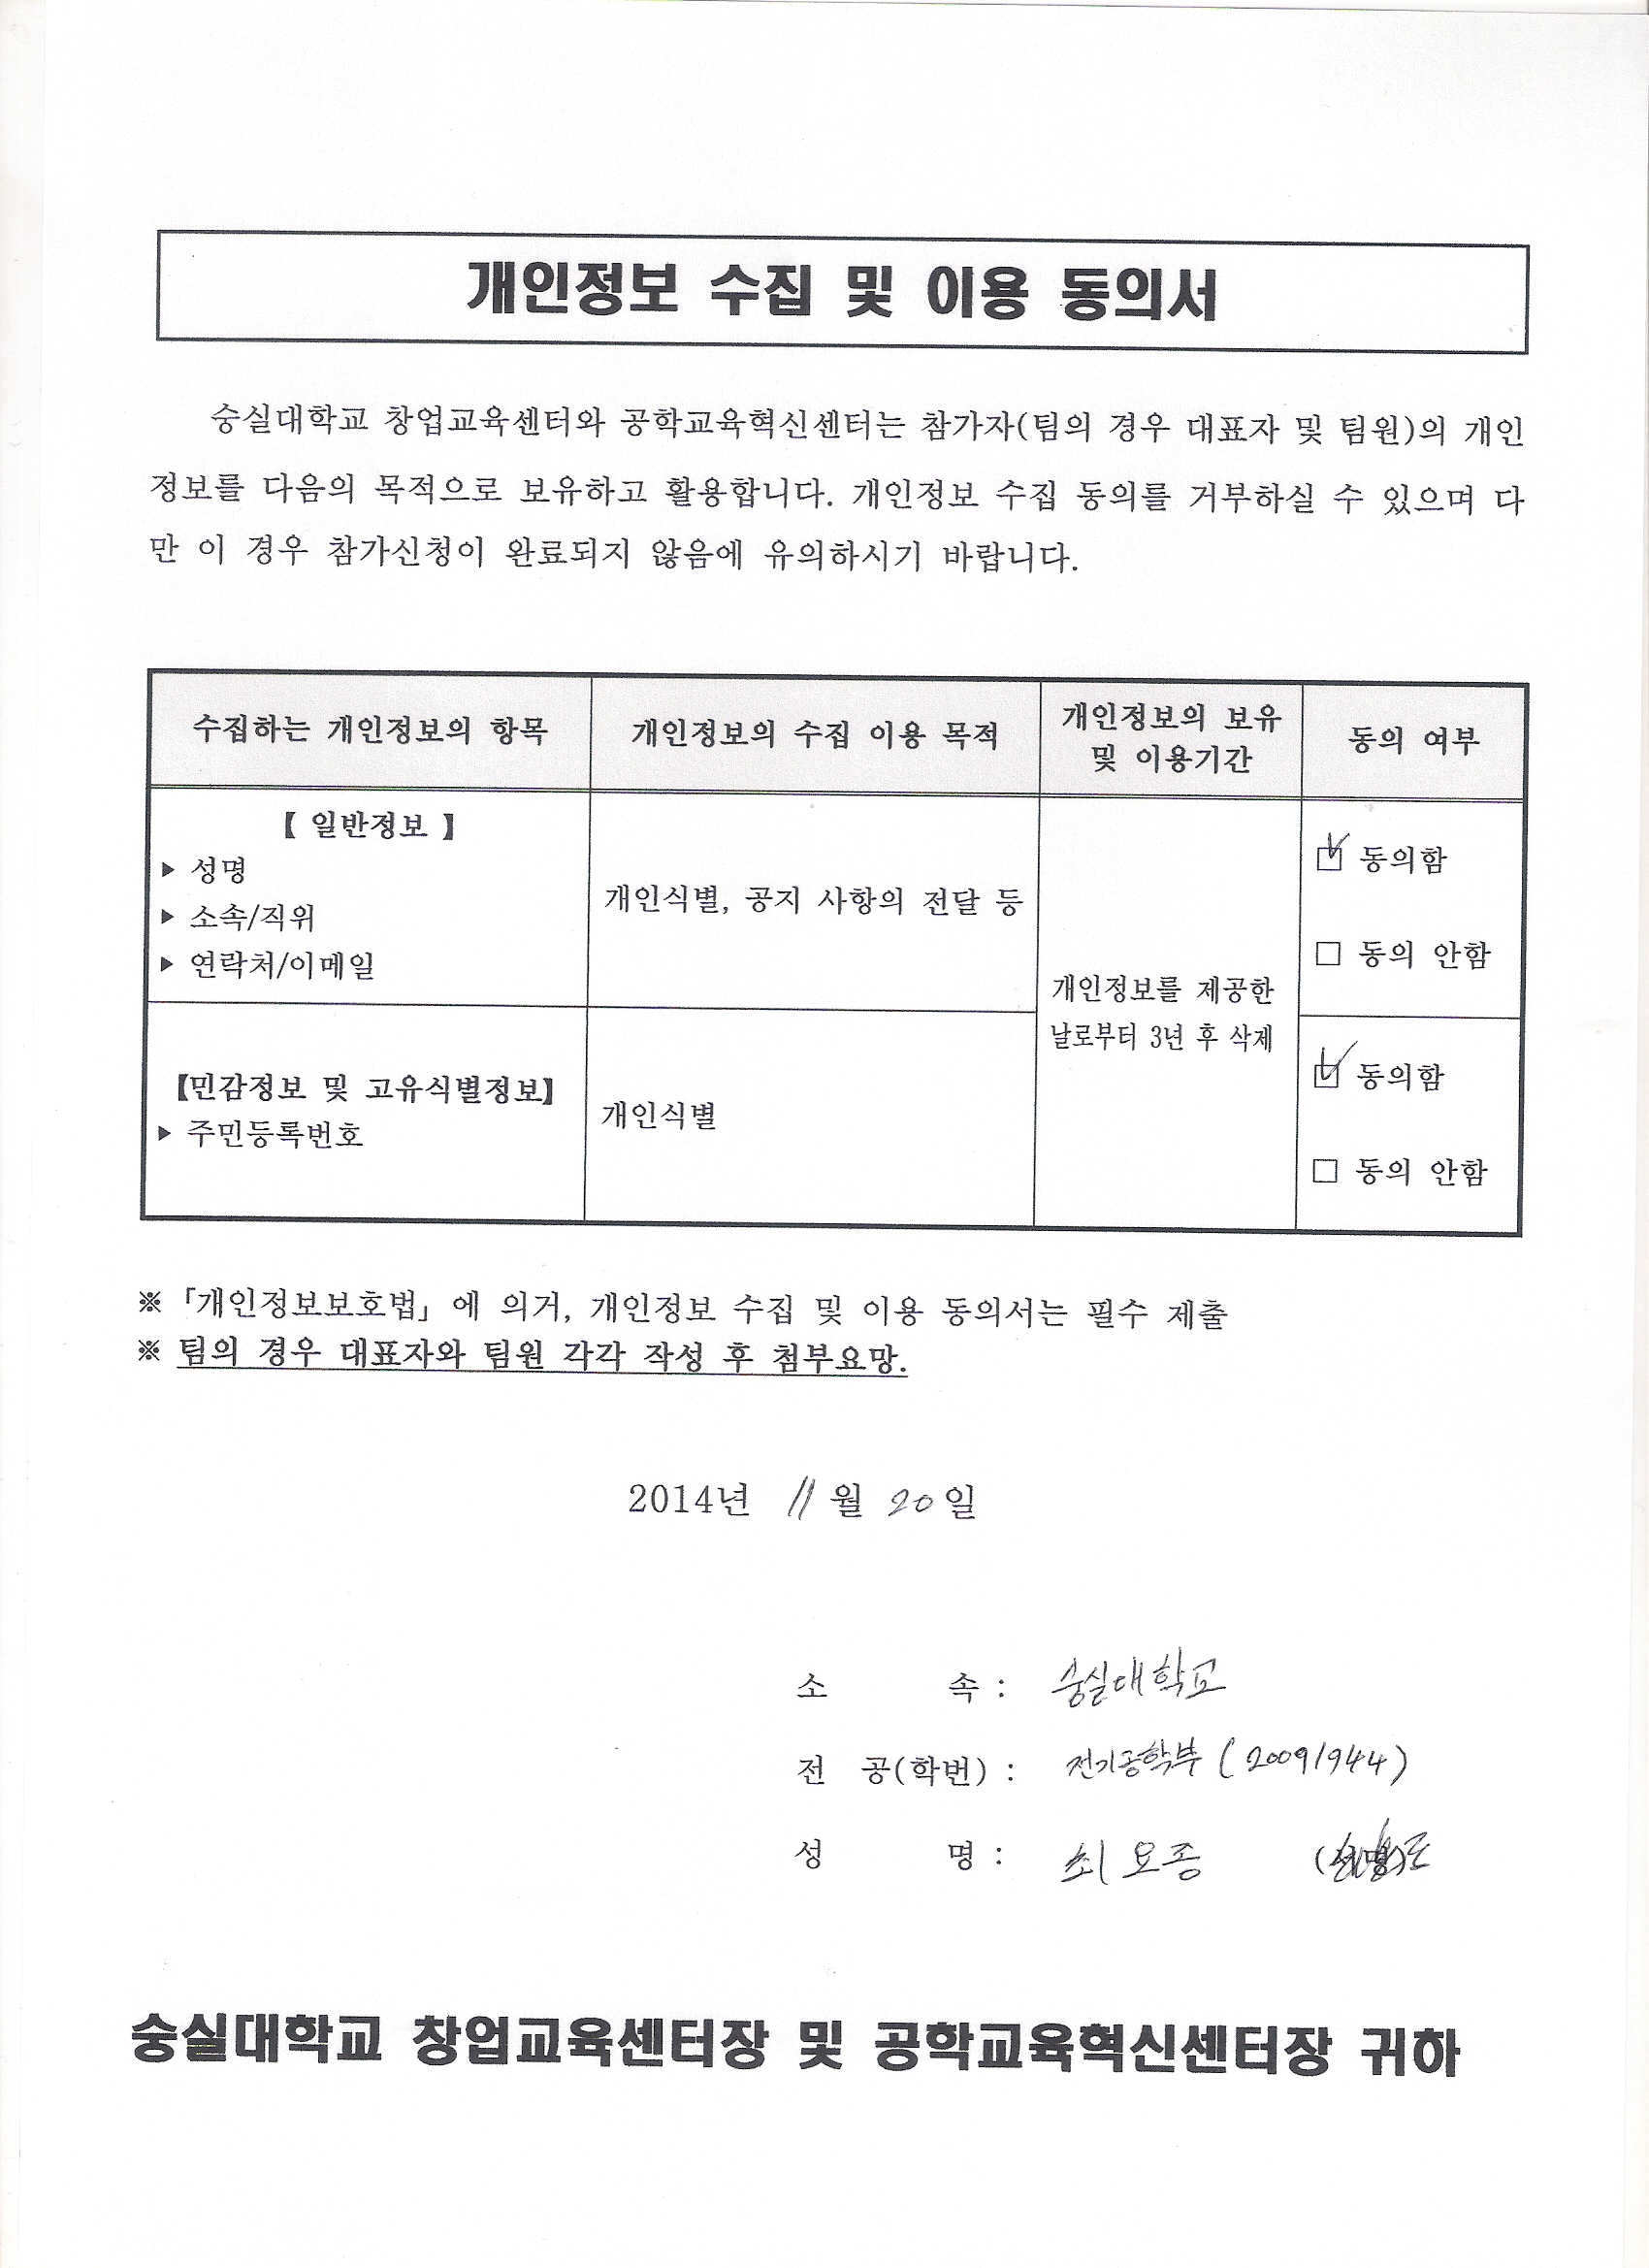 개인정보 수집 및 이용 동의서
숭실대학교 창업교육센터와 공학교육혁신센터는 참가자(팀의 경우 대표자 및 팀원)의 개인
정보를 다음의 목적으로 보유하고 활용합니다. 개인정보 수집 동의를 거부하실 수 있으며 다
만 이 경우 참가신청이 완료되지 않음에 유의하시기 바랍니다.
수집하는 개인정보의 항목
개인정보의 수집 이용 목적
개인정보의 보유
및 이용기간
동의 여부
【 일반정보 】
▶ 성명
▶ 소속/직위
▶ 연락처/이메일
개인식별, 공지 사항의 전달 등
개인정보를 제공한
날로부터 3년 후 삭제
☑ 동의함
□ 동의 안함
【민감정보 및 고유식별정보】
▶ 주민등록번호
개인식별
☑ 동의함
□ 동의 안함
※ 「개인정보보호법」에 의거, 개인정보 수집 및 이용 동의서는 필수 제출
※ 팀의 경우 대표자와 팀원 각각 작성 후 첨부요망.
2014년 11월 20일
소 속 : 숭실대학교
전 공(학번) : 전기공학부 (20091944)
성 명 : 최요종
숭실대학교 창업교육센터장 및 공학교육혁신센터장 귀하